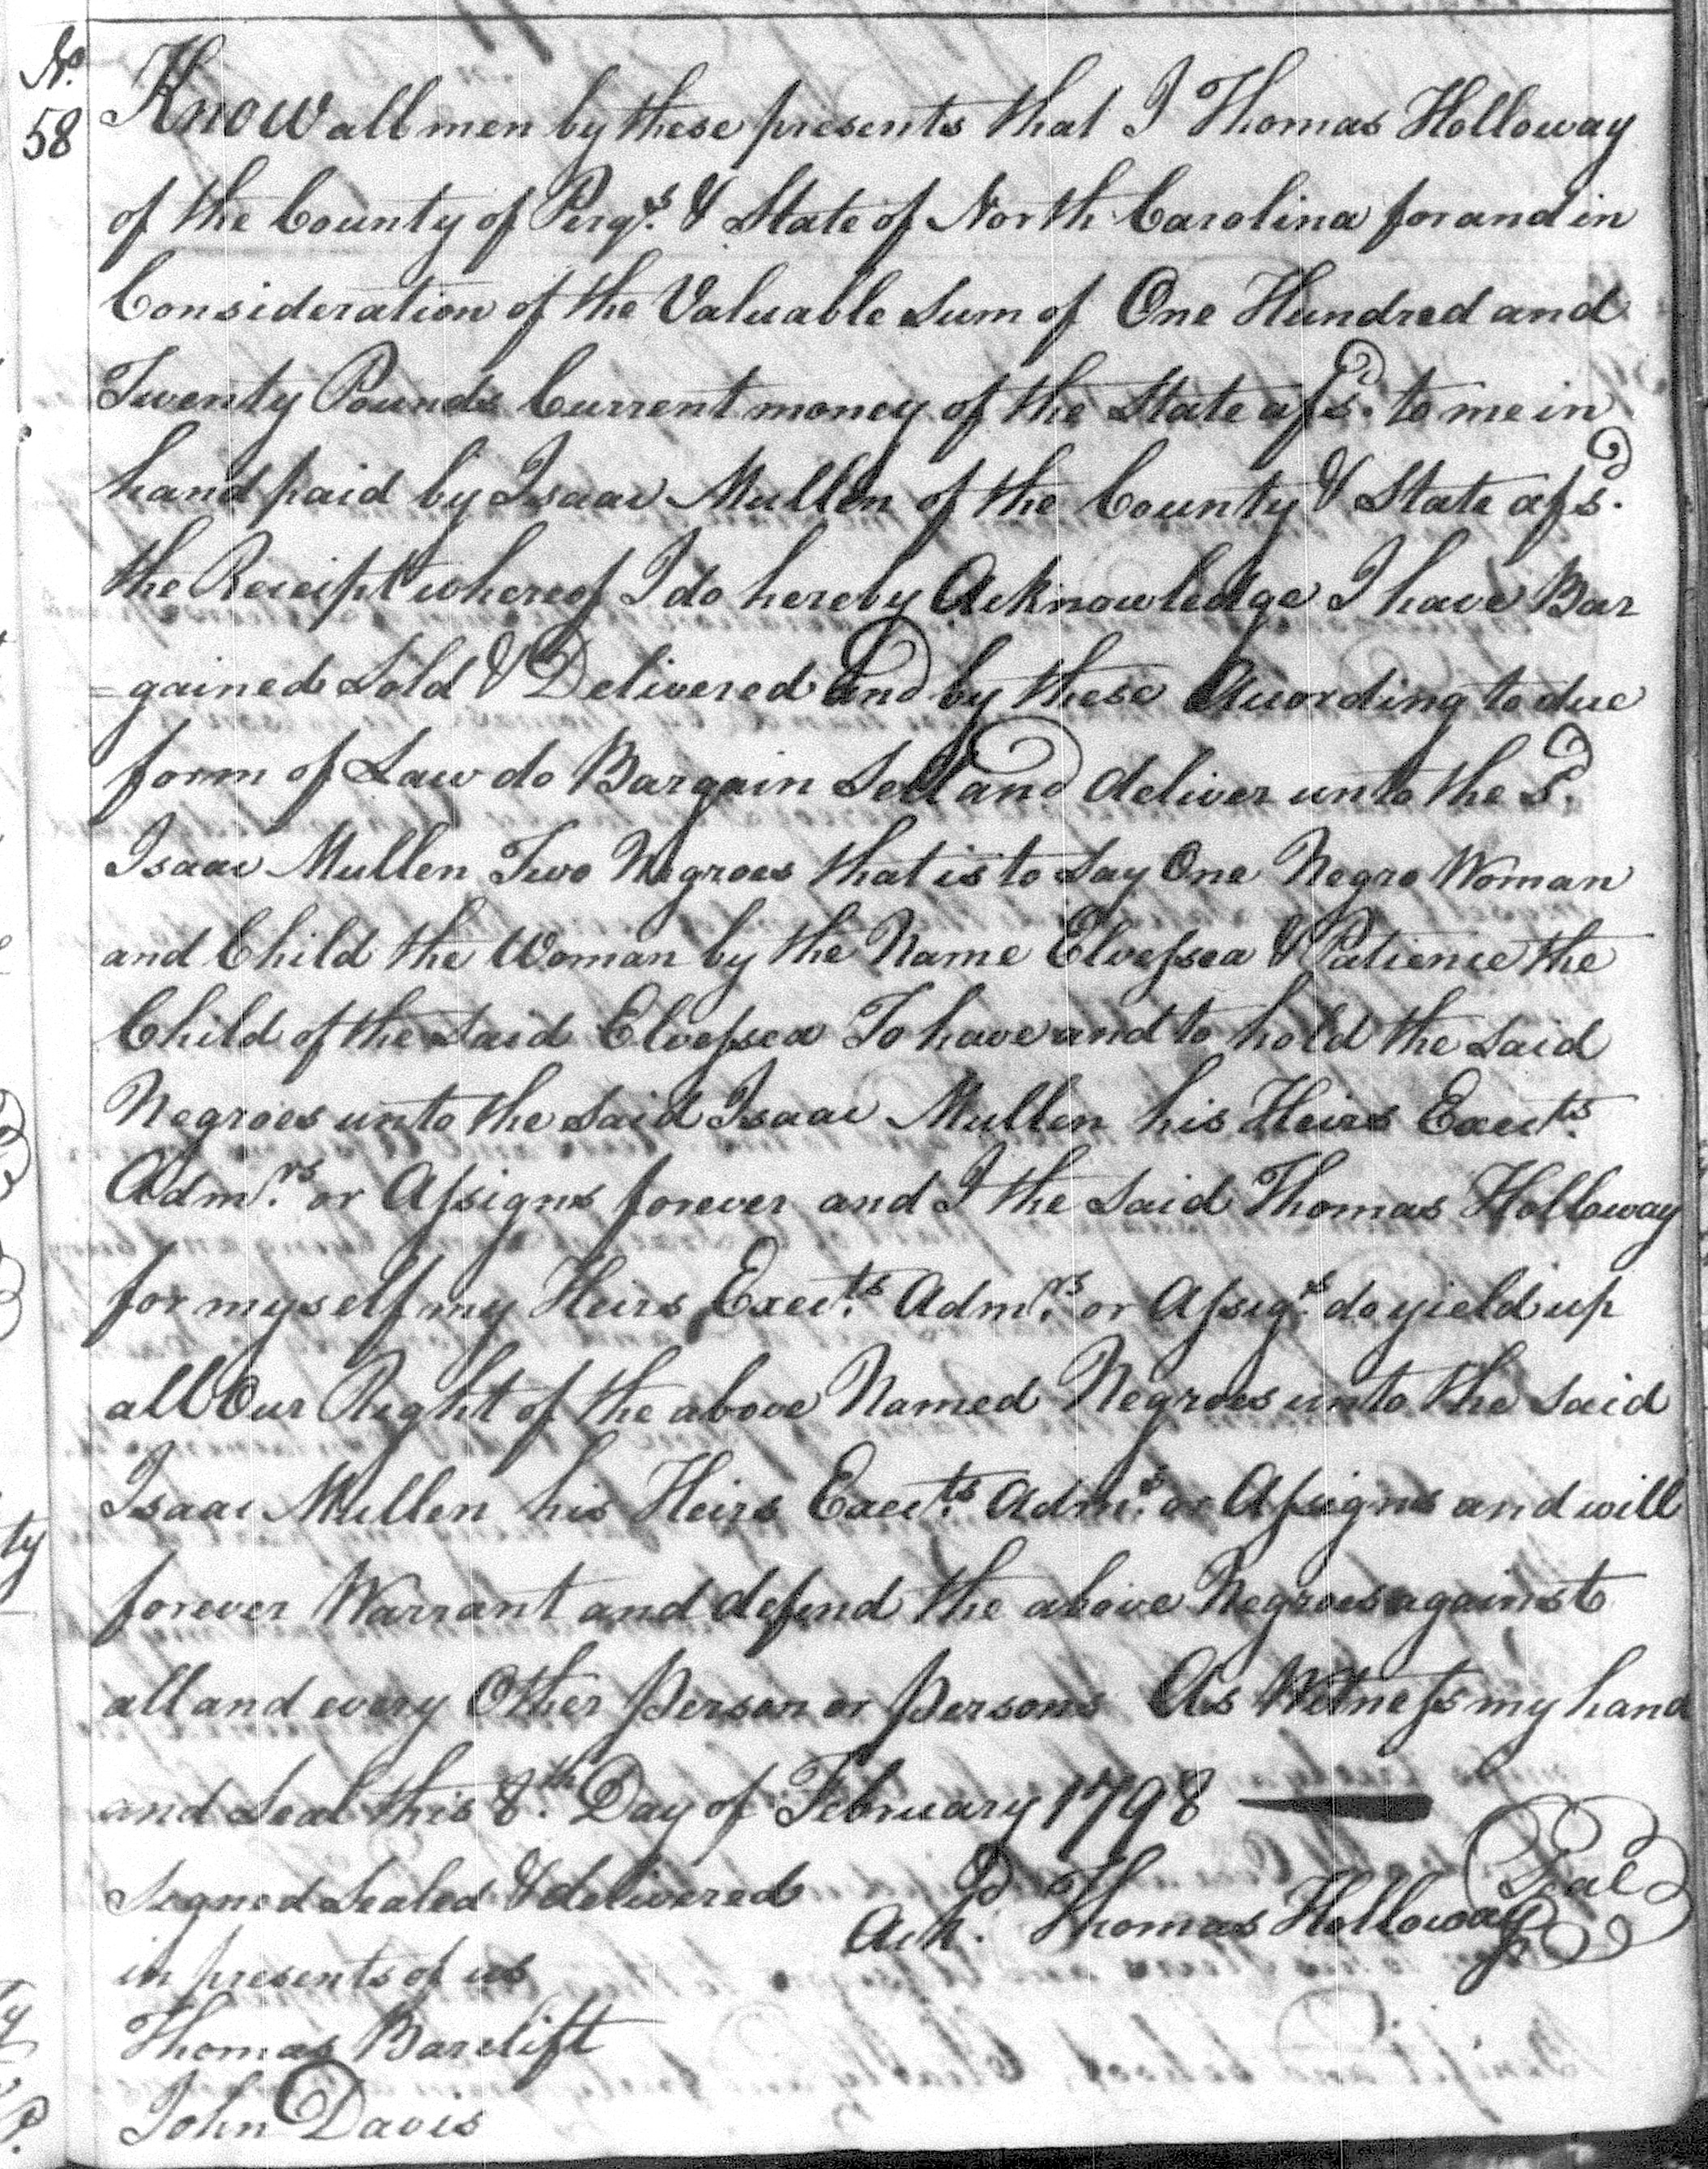 No.
58
Know all men by these presents that I Thomas Holloway
of the County of Perqs. & State of North Carolina for and in
Consideration of the Valuable Sum of One Hundred and
Twenty Pounds Current money of the State afsd. to me in
hand paid by Isaac Mullen of the County & State afsd.
the Receipt whereof I do hereby Acknowledge I have Bar
=gained Sold & Delivered and by these According to due
form of Law do Bargain Sell and deliver unto the Sd.
Isaac Mullen Two Negroes that is to Say One Negro Woman
and Child the Woman by the Name Elvessea & Patience the
Child of the said Elvessea To have and to hold the said
Negroes unto the said Isaac Mullen his Heirs Exects.
Admrs. or Assigns forever and I the said Thomas Holloway
for myself my Heirs Exects. Admrs. or Assigs. do yield up
all Our Right of the above Named Negroes unto the said
Isaac Mullen his Heirs Exects. Admrs. or Assigns and will
forever Warrant and defend the above Negroes against
all and every Other person or persons As Witness my hand
and Seal this 8th. Day of February 1798
Signed Sealed & delivered
Ackd. Thomas Holloway Seal
in presents of us
Thomas Barclift
John Davis